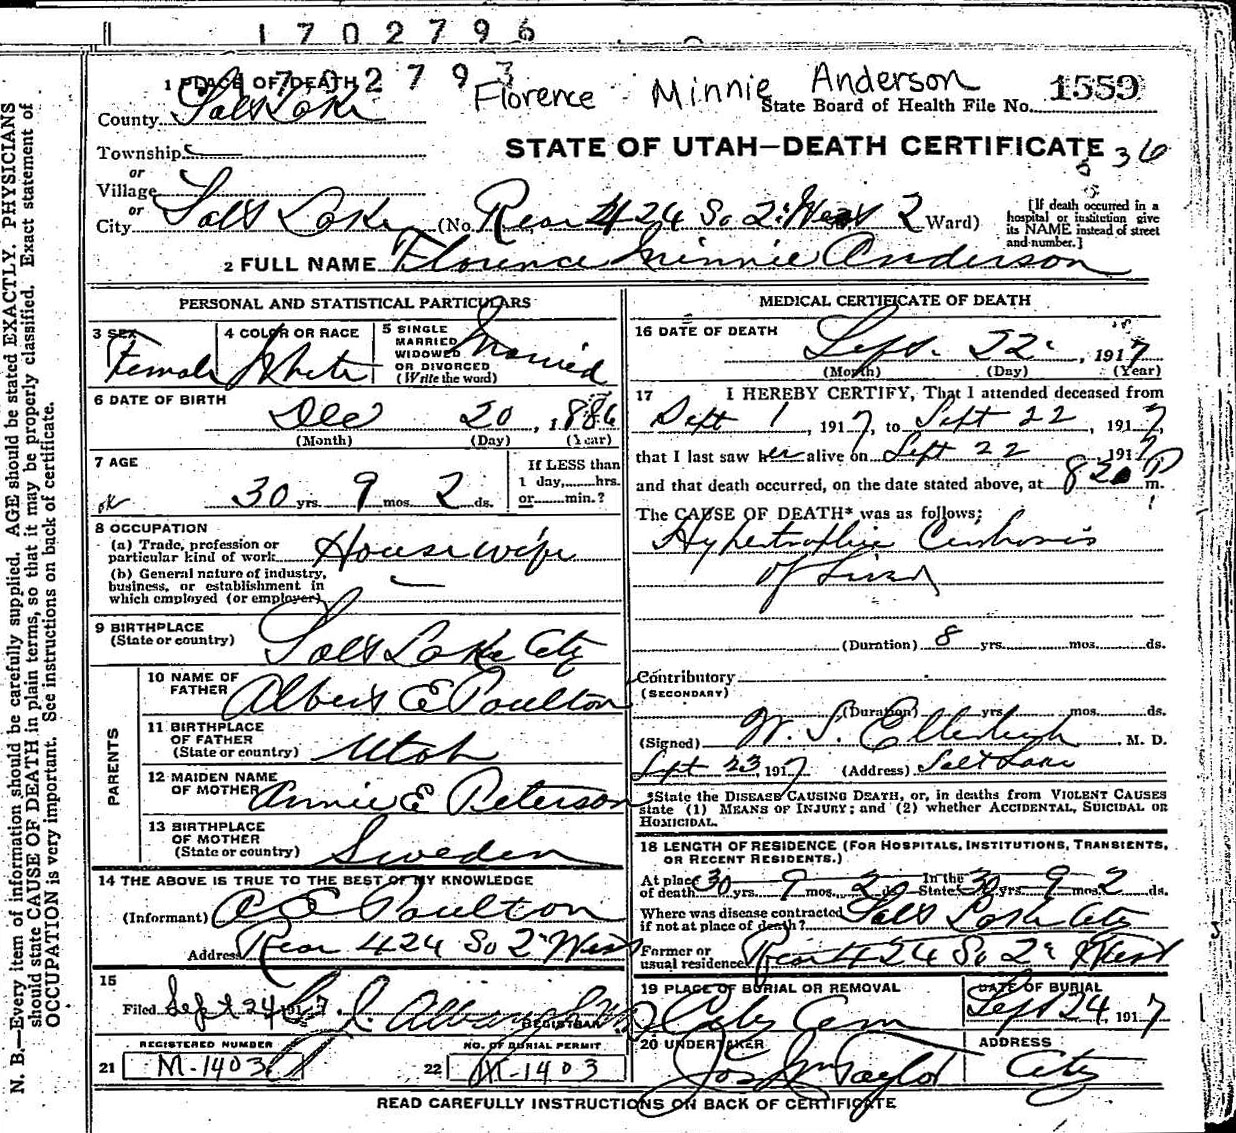 1702796
1 PLACE OF DEATH 1702793 Florence Minnie Anderson
County Salt Lake State Board of Health File No. 1559
Township STATE OF UTAH—DEATH CERTIFICATE 536
or
Village
or
City Salt Lake (No. Rear 424 So 2d West 2 Ward) [If death occurred in a hospital or institution give its NAME instead of street and number.]
2 FULL NAME Florence Minnie Anderson
PERSONAL AND STATISTICAL PARTICULARS
3 SEX Female 4 COLOR OR RACE White 5 SINGLE MARRIED WIDOWED OR DIVORCED (Write the word) Married
6 DATE OF BIRTH Dec 20, 1886
(Month) (Day) (Year)
7 AGE 30 yrs. 9 mos. 2 ds. If LESS than 1 day, hrs. or min.?
8 OCCUPATION
(a) Trade, profession or particular kind of work Housewife
(b) General nature of industry, business, or establishment in which employed (or employer)
9 BIRTHPLACE (State or country) Salt Lake City
PARENTS
10 NAME OF FATHER Albert E Poulton
11 BIRTHPLACE OF FATHER (State or country) Utah
12 MAIDEN NAME OF MOTHER Annie E Peterson
13 BIRTHPLACE OF MOTHER (State or country) Sweden
14 THE ABOVE IS TRUE TO THE BEST OF MY KNOWLEDGE
(Informant) A E Poulton
Address Rear 424 So 2d West
15
Filed Sept 24 1917 REGISTRAR
REGISTERED NUMBER NO. OF BURIAL PERMIT
21 M-1403 22 M-1403
MEDICAL CERTIFICATE OF DEATH
16 DATE OF DEATH
Sept. 22, 1917
(Month) (Day) (Year)
17 I HEREBY CERTIFY, That I attended deceased from
Sept 1, 1917, to Sept 22, 1917,
that I last saw her alive on Sept 22, 1917
and that death occurred, on the date stated above, at 820 P m.
The CAUSE OF DEATH* was as follows:
Hypertrophic Cirrhosis
of Liver
(Duration) 8 yrs. mos. ds.
Contributory
(SECONDARY)
(Duration) yrs. mos. ds.
(Signed) W. S. Ellerbeck, M. D.
Sept 23, 1917 (Address) Salt Lake
*State the DISEASE CAUSING DEATH, or, in deaths from VIOLENT CAUSES
state (1) MEANS OF INJURY; and (2) whether ACCIDENTAL, SUICIDAL OR
HOMICIDAL.
18 LENGTH OF RESIDENCE (FOR HOSPITALS, INSTITUTIONS, TRANSIENTS,
OR RECENT RESIDENTS.)
At place of death 30 yrs. 9 mos. 2 ds. In the State 30 yrs. 9 mos. 2 ds.
Where was disease contracted if not at place of death? Salt Lake City
Former or usual residence Rear 424 So 2d West
19 PLACE OF BURIAL OR REMOVAL DATE OF BURIAL
City Cem Sept 24, 1917
20 UNDERTAKER ADDRESS
Jos Wm Taylor City
READ CAREFULLY INSTRUCTIONS ON BACK OF CERTIFICATE
N. B.—Every item of information should be carefully supplied. AGE should be stated EXACTLY. PHYSICIANS
should state CAUSE OF DEATH in plain terms, so that it may be properly classified. Exact statement of
OCCUPATION is very important. See instructions on back of certificate.